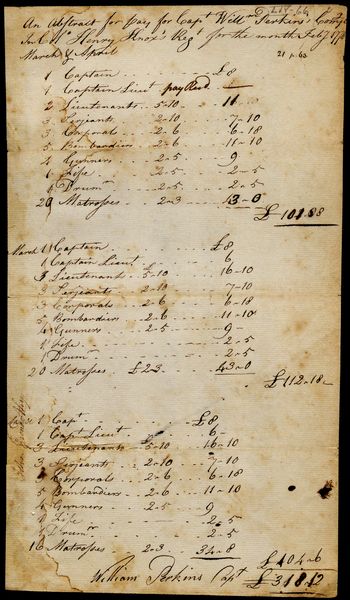 An Abstract for Pay for Capt Willm Perkins Compy
In Col Henry Knox Regt for the month Feby 1776
March & April
21 p. 63
1 Captain £8
1 Captain Lieut pay Recd —
2 Lieutenants 5-10 11
3 Serjants 2-10 7-10
3 Corporals 2-6 6-18
5 Bombardiers 2-6 11-10
4 Gunners 2-5 9
1 Fife 2-5 2-5
1 Drumr 2-5 2-5
20 Matrosses 2-3 43-0
£ 101-8-8
March 1 Captain £8
1 Captain Lieut 6
3 Lieutenant 5-10 16-10
3 Serjants 2-10 7-10
3 Corporals 2-6 6-18
5 Bombardiers 2-6 11-10
4 Gunners 2-5 9-
1 Fife 2-5
1 Drumr 2-5
20 Matrosses £2-3 43-0
£112-18-
1 Capt £8
1 Capt Lieut 6-
3 Lieutenants 5-10 16-10
3 Serjants 2-10 7-10
3 Corporals 2-6 6-18
5 Bombardiers 2-6 11-10
4 Gunners 2-5 9
1 Fife 2-5
1 Drumr 2-5
16 Matrosses 2-3 34-8
£104-6
William Perkins Capt £318-12